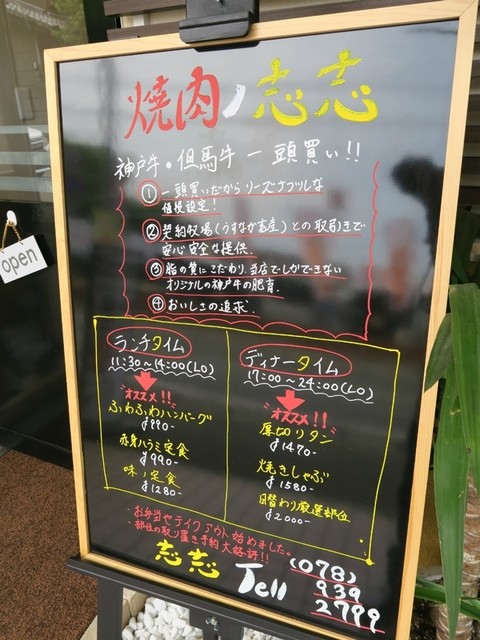 焼肉ノ志志
神戸牛・但馬牛 一頭買い!!
① 一頭買いだからリーズナブルな
価格設定!
② 契約牧場(うすなが畜産)との取引きで
安心安全な提供.
③ 脂の質にこだわり、当店でしかできない
オリジナルの神戸牛の肥育.
④ おいしさの追求.
open
ランチタイム
11:30~14:00(LO)
オススメ!!
ふわふわハンバーグ
¥990-
赤身ハラミ定食
¥990-
味ノ定食
¥1280-
ディナータイム
17:00~24:00(LO)
オススメ!!
厚切りタン
¥1470-
焼きしゃぶ
¥1580-
日替わり厳選部位
¥2000-
・お弁当やテイクアウト始めました。
・部位の取り置き予約大好評!!
志志 Tell (078)
939
2799